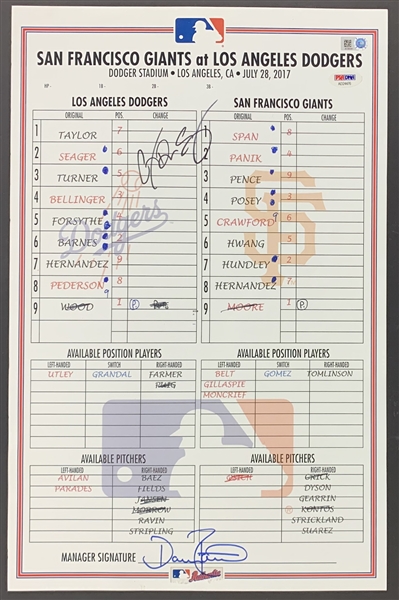 SAN FRANCISCO GIANTS at LOS ANGELES DODGERS
DODGER STADIUM • LOS ANGELES, CA • JULY 28, 2017
HP - 1B - 2B - 3B -
LOS ANGELES DODGERS SAN FRANCISCO GIANTS
ORIGINAL POS. CHANGE ORIGINAL POS. CHANGE
1 TAYLOR 7 1 SPAN 8
2 SEAGER 6 2 PANIK 4
3 TURNER 5 3 PENCE 9
4 BELLINGER 3 4 POSEY
5 FORSYTHE 4 5 CRAWFORD
6 BARNES 2 6 HWANG 5
7 HERNANDEZ 7 HUNDLEY 2
8 PEDERSON 8 8 HERNANDEZ 7
9 WOOD 1 P 9 MOORE 1 P
Dodgers
SF
AVAILABLE POSITION PLAYERS AVAILABLE POSITION PLAYERS
LEFT-HANDED SWITCH RIGHT-HANDED LEFT-HANDED SWITCH RIGHT-HANDED
UTLEY GRANDAL FARMER BELT GOMEZ TOMLINSON
PUIG GILLASPIE
MONCRIEF
AVAILABLE PITCHERS AVAILABLE PITCHERS
LEFT-HANDED RIGHT-HANDED LEFT-HANDED RIGHT-HANDED
AVILAN BAEZ
PARADES FIELDS DYSON
JANSEN GEARRIN
MORROW KONTOS
RAVIN STRICKLAND
STRIPLING SUAREZ
MANAGER SIGNATURE
Authentic
PSA/DNA